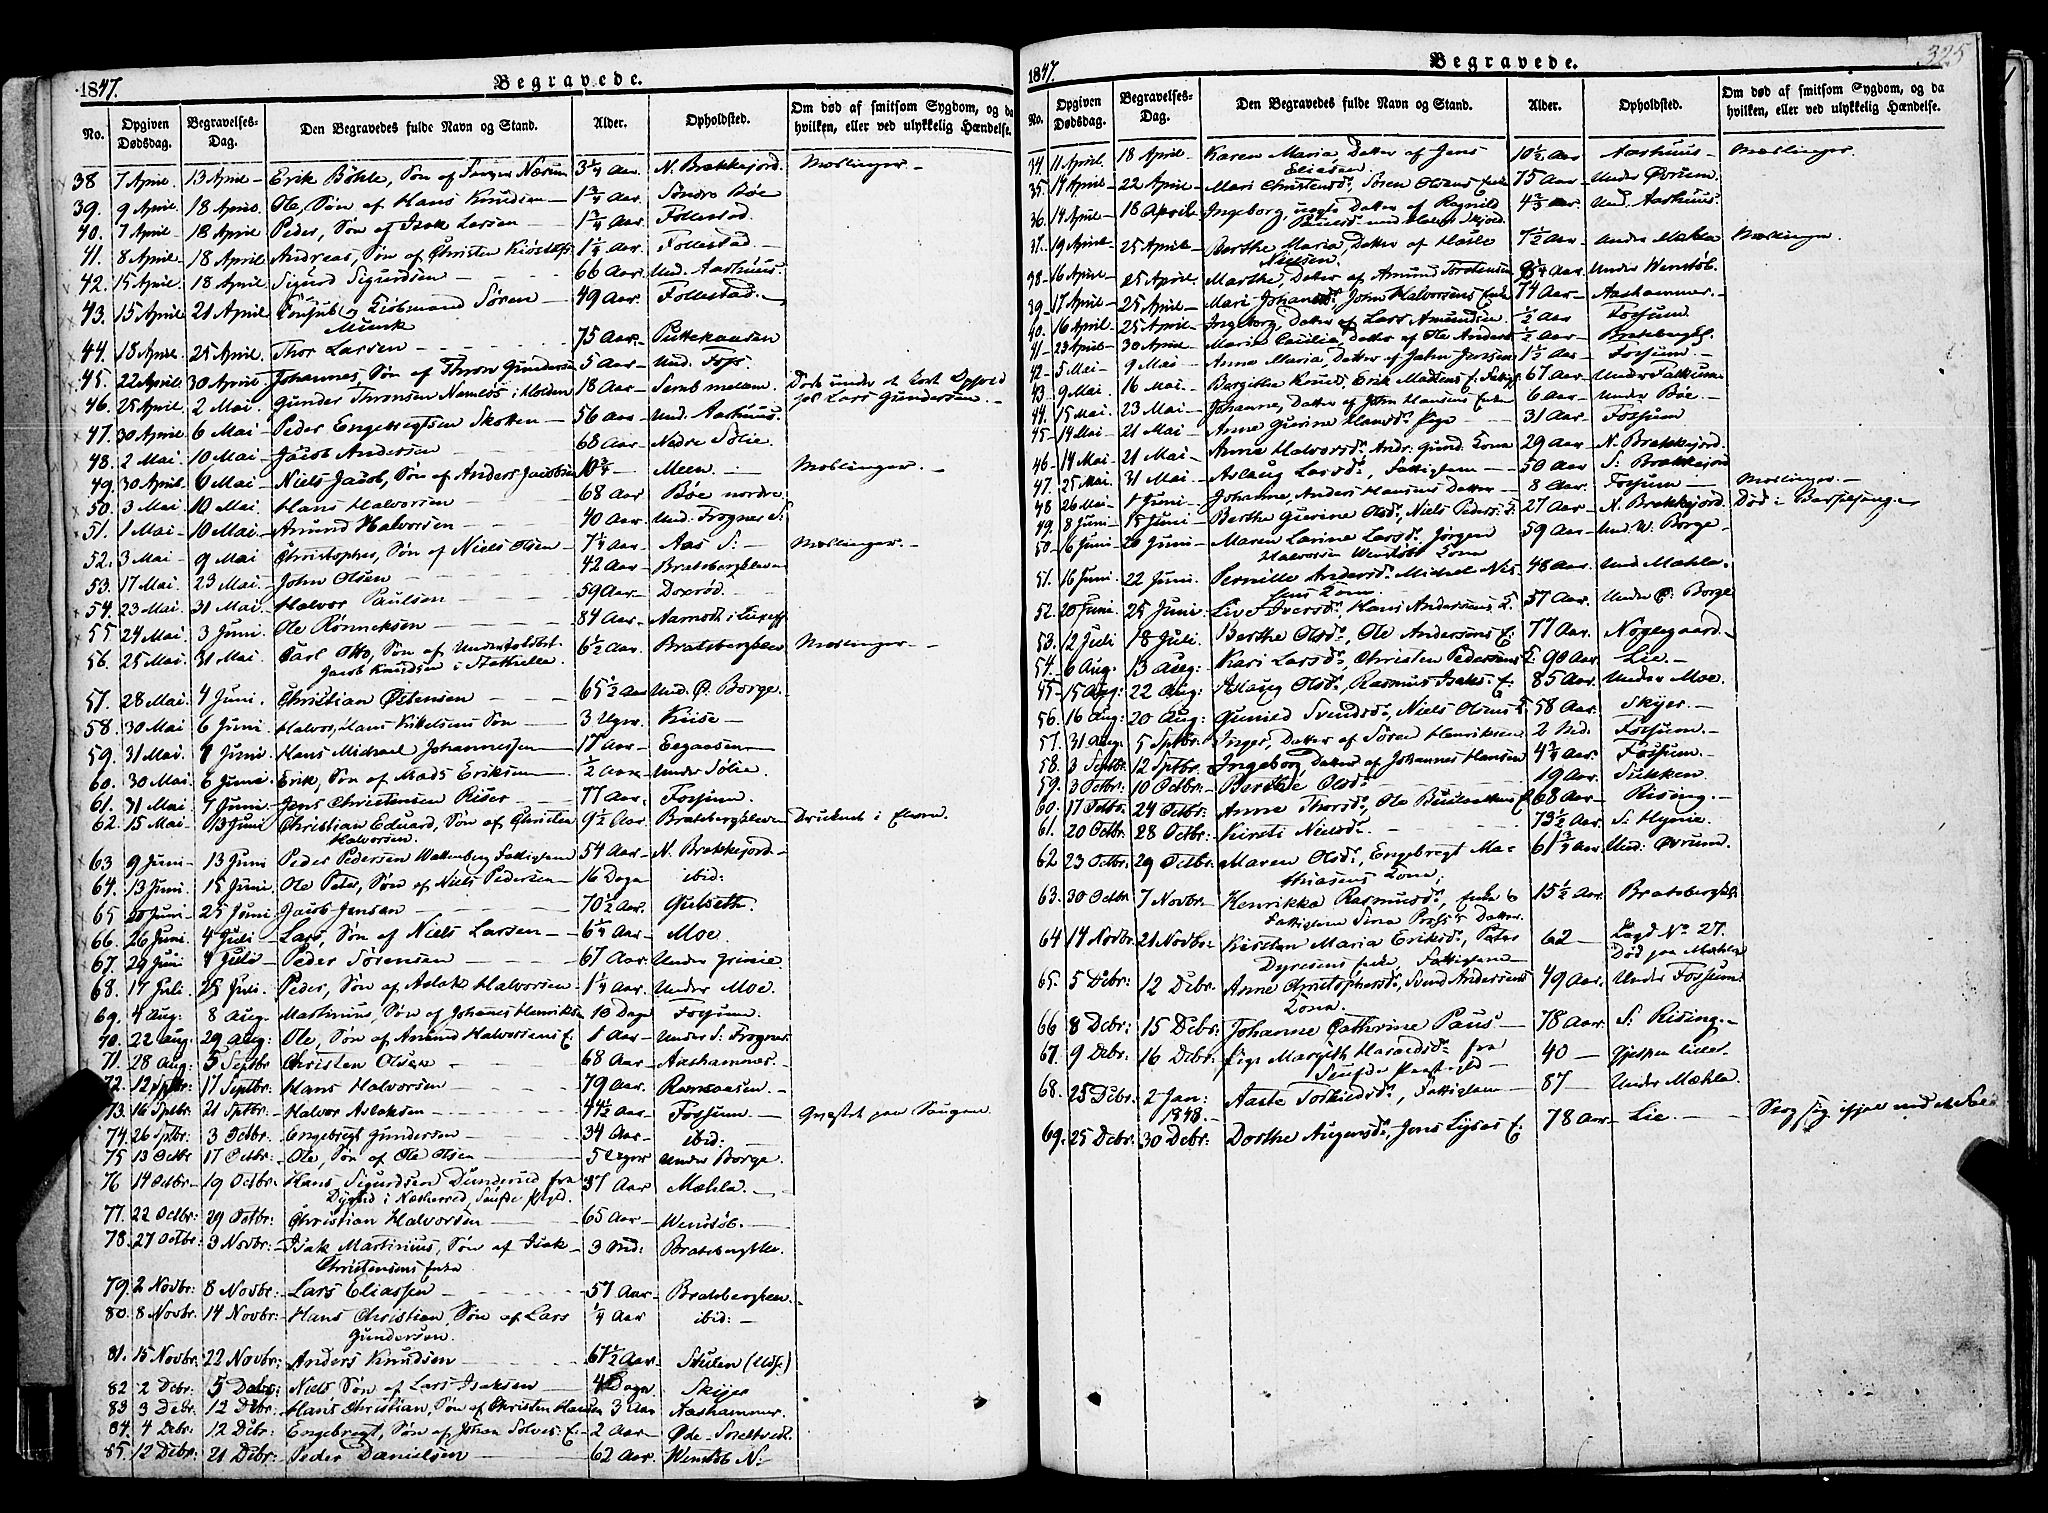 1847.
Begravede.
No.
Opgiven Dødsdag.
Begravelses-Dag.
Den Begravedes fulde Navn og Stand.
Alder.
Opholdsted.
Om død af smitsom Sygdom, og da hvilken, eller ved ulykkelig Hændelse.
38 7 April. 13 April - Erik Böhle, Søn af 3¼ Aar. N. Brekkejord Meslinger -
39. 9 April. 18 April. Ole, Søn af Hans Knudsen - 1¾ Aar. Søndre Böe
40. 7 April - 18 April Peder, Søn af Isak Larsen - 1¾ Aar. Follestad.
41. 8 April. 18 April Andreas, Søn af Christen 1¼ Aar. Follestad -
42. 15 April. 18 April - Sigurd Sigurdsen - 66 Aar. Und. Aashuus.
43. 15 April 21 April Consul og Eidsmand Søren - 49 Aar. Follestad. -
Munk
44. 18 April. 25 April. Thor Larsen - - - - 75 Aar. Puttekaasen
45. 22 April. 30 April. Johannes, Søn af Thron Gundersen 5 Aar. Und. Foss.
46. 25 April. 2 Mai - Gunder Thronsen Namlös i Holden 18 Aar - Døde under et kort Ophold
hos Lars Gundersen. -
47. 30 April. 6 Mai - Peder Engebregtsen Skotten - 56 Aar - Und. Aashuus.
48. 2 Mai. 10 Mai - Jacob Andersen 68 Aar. Nedre Sölie.
49. 30 April. 6 Mai - Niels Jacob, Søn af Anders Jacobsen 10¾ - Meen - Meslinger. -
50. 3 Mai. 10 Mai. Hans Halvorsen 68 Aar Böe nordre
51. 1 Mai - 10 Mai. Amund Halvorsen 40 Aar. Und. Frogner S:
52. 3 Mai - 9 Mai Christopher, Søn af Niels Olsen - 7¼ Aar - Aas S: - Meslinger. -
53. 17 Mai. 23 Mai. - John Olsen 42 Aar - Bratsbergkleven
54. 23 Mai. 31 Mai. Halvor Paulsen 59 Aar - Doxrød.
55 24 Mai 3 Juni. Ole Rönneksen - 84 Aar -
56. 25 Mai. 31 Mai. Carl Otto, Søn af Undertoldbet. 6½ Aar. Bratsbergklev Meslinger. -
Jacob Knudsen i Stathelle
57. 28 Mai. 4 Juni. Christian Östensen 65½ Aar Und. Ø. Borge.
58. 30 Mai 6 Juni. Halvor, Hans Kittelsens Søn - 3 Uger. Kiise -
59. 31 Mai. 7 Juni - Hans Michael Johannessen 17 Aar -
60. 30 Mai 6 Juni Erik, Søn af Mads Eriksen ½ Aar. Under Sölie.
61. 31 Mai 7 Juni - Jens Christensen Riser 77 Aar. Fossum.
62. 15 Mai - 13 Juni Christian Eduard, Søn af Christen 9½ Aar. Bratsbergkleven Druknet i Elven.
Halvorsen.
63 9 Juni - 13 Juni Peder Pedersen Wattenberg Fattiglem 54 Aar - N. Brekkejord -
64. 13 Juni. 15 Juni. Ole Peter, Søn af Niels Pedersen - 16 Dage ibid:
65 20 Juni - 25 Juni Jacob Jensen 70½ Aar. Gulseth.
66. 26 Juni 4 Juli - Lars, Søn af Niels Larsen - 6¼ Aar - Moe.
67. 29 Juni 4 Juli - Peder Sørensen 67 Aar. Under Grinie.
68. 17 Juli. 25 Juli. Peder, Søn af Aslak Halvorsen. 1¼ Aar. Under Moe.
69. 4 Aug: 8 Aug. Martinius, Søn af Johanes Henriksen 10 Dage Fossum.
70. 22 Aug: 29 Aug: Ole, Søn af Amund Halvorsens E: 1 Aar - Under S: Frogner
71. 28 Aug: 5 Septbr Christen Olsen - 68 Aar - Aashammer. -
72. 12 Sptbr: 17 Septbr. Hans Halvorsen 79 Aar. Ramsaasen. -
73. 16 Sptbr: 21 Sptbr: Halvor Aslaksen 44½ Aar - Fossum - Qvæstet paa Saugen
74. 26 Sptbr: 3 Octbr: Engebregt Gundersen 34 Aar - ibid: -
75 13 Octbr 17 Octbr: Ole, Søn af Ole Olsen 5 Uger Under Borge.
76 14 Octbr - 19 Octbr: Hans Sigurdsen Dunderud fra 37 Aar Mæhla. -
77. 22 Octbr: 29 Octbr: Christian Halvorsen 65 Aar - Wenstöb. -
78. 27 Octbr: 3 Novbr: Isak Martinius, Søn af Isak 3 Md: Bratsbergkle.
Christensens Enke
79. 2 Novbr: 8 Novbr: Lars Eliassen 57 Aar. Bratsbergkleven.
80. 8 Novbr: 14 Novbr: Hans Christian, Søn af Lars ¼ Aar ibid: -
Gundersen.
81. 15 Novbr: 22 Novbr: Anders Knudsen 67½ Aar.
82 2 Debr: 5 Debr: Niels, Søn af Lars Isaksen 4 Dage. Skyer
83 3 Debr. 12 Debr: Hans Christian, Søn af Christen Hansen 3 Aar Aashammer.
84. 4 Debr: 12 Debr: Engebregt, Søn af Johan Solves: E: 2 Aar -
85. 12 Debr: 21 Debr: Peder Danielsen 62 Aar. Wenstöb N: -
1847.
Begravede.
325
No.
Opgiven Dødsdag.
Begravelses-Dag.
Den Begravedes fulde Navn og Stand.
Alder.
Opholdsted.
Om død af smitsom Sygdom, og da hvilken, eller ved ulykkelig Hændelse.
34. 11 April. 18 April - Karen Maria, Datter af Jens 10½ Aar Aashuus - Meslinger.
Eliasen
35. 14 April - 22 April - Mari Christensd:, Sören Olsens Enke 75 Aar - Under Øvrum.
36. 14 April - 18 April Ingeborg, uægte Datter af Ragnild 4⅔ Aar. Und. Aashuus.
37. 19 April - 25 April - Berthe Maria, Datter af 7½ Aar - Under Mæhla Meslinger.
Nielsen.
38 - 16 April - 25 April. Marthe, Datter af Amund Torstensen Aar. Under Wenstöb.
39. 17 April - 25 April - Mari Johansd:, John Halvorsens Enke 74 Aar - Aashammer. -
40. 16 April - 25 April - Ingeborg, Datter af Lars Amundsen ½ Aar Fossum
41 - 23 April - 30 April - Maren Cecilia, Datter af Ole Anders ½ Aar - Bratsbergkl.
42 - 5 Mai - 9 Mai - Anne Maria, Datter af John Jensen 1½ Aar - Fossum. -
43. 9 Mai. 16 Mai. - 67 Aar -
44. 15 Mai. 23 Mai - Johanne, Datter af John Hansens Enke 6 Aar - Under Böe. -
45 - 14 Mai - 21 Mai - Anne Gurine Hansd: Pige 31 Aar. Fossum
46. 14 Mai 21 Mai - Anne Halvorsd:, Andr: Gund. Kona 29 Aar N. Brekkejord.
47. 25 Mai. 31 Mai - Aslaug Larsd:, Fattiglem - - 50 Aar S: Brekkejord
48 26 Mai - 1 Juni - Johanne, Anders Hansens Datter - 8 Aar. Fossum - Meslinger. -
49. 8 Juni - 15 Juni - Berthe Gurine Olsd:, Niels Peders: K: 27 Aar - N. Brekkejord. Død i Barselseng -
50. 16 Juni - 20 Juni - Maren Larine Larsd:, Jörgen 59 Aar. Und. W. Borge -
Halvorsen Wenstöbs Kona
51. 16 Juni 22 Juni. Pernille Andersd: Michel Nil- 48 Aar. Und Mæhla.
sens Kona.
52. 20 Juni. 25 Juni - Live Iversd:, Hans Andersens K. 57 Aar. Under Ø: Borge
53. 12 Juli 18 Juli. Berthe Olsd:, Ole Andersens E: 77 Aar. Nöglegaard.
54. 6 Aug: 13 Aug: Kari Larsd:, Christen Pedersens E: 90 Aar. Lie. -
45. 15 Aug: 22 Aug: Aslaug Olsd:, Rasmus Isaks: E: 85 Aar. Under Moe.
56. 16 Aug: 20 Aug: Gunild Svendsd:, Niels Olsens E 58 Aar. Skyer. -
57. 31 Aug: 5 Sptbr: Inger, Datter af Sören Henriksen 2 Md. Fossum. -
58. 3 Septbr. 12 Sptbr. Ingeborg Datter af Johannes Hansen 4¾ Aar. Fossum. -
59. 3 Octbr: 10 Octbr: - Berthe Olsd: 19 Aar. Sükken.
60. 17 Octbr: 24 Octbr: Anne Thorsd:, Ole E 68 Aar - Rising. -
61. 20 Octbr: 28 Octbr: Kirsti Nielsd: 73½ Aar. S: Hynie.
62 23 Octbr: 29 Octbr: Maren Olsd:, Engebregt Ma- 61¾ Aar. Und: Øvrum.
thiasens Kona;
63. 30 Octbr 7 Novbr - Henrikka Rasmusd:, 15½ Aar. Bratsbergkl.
64 14 Novbr. 21 Novbr: Kirsten Maria Eriksd:, Peter 62 - Lagd No 27.
Dyresens Enke, Fattiglem - Død paa Mæhla
65. 5 Debr: 12 Debr. Anne Christophersd:, Svend Andersens 49 Aar. Under Fossum
Kona.
66 8 Debr: 15 Debr: Johanne Cathrine Paus - 78 Aar. S: Rising. -
67. 9 Debr: 16 Debr: Pige Margith Haraldsd: fra 40 -
68. 25 Debr. 2 Jan: Aaste Torkildsd:, Fattiglem - 87 - Under Mæhla.
1848.
69. 25 Debr: 30 Debr: Dorthe Augensd:, Jens Lyses E: 78 Aar - Lie. -